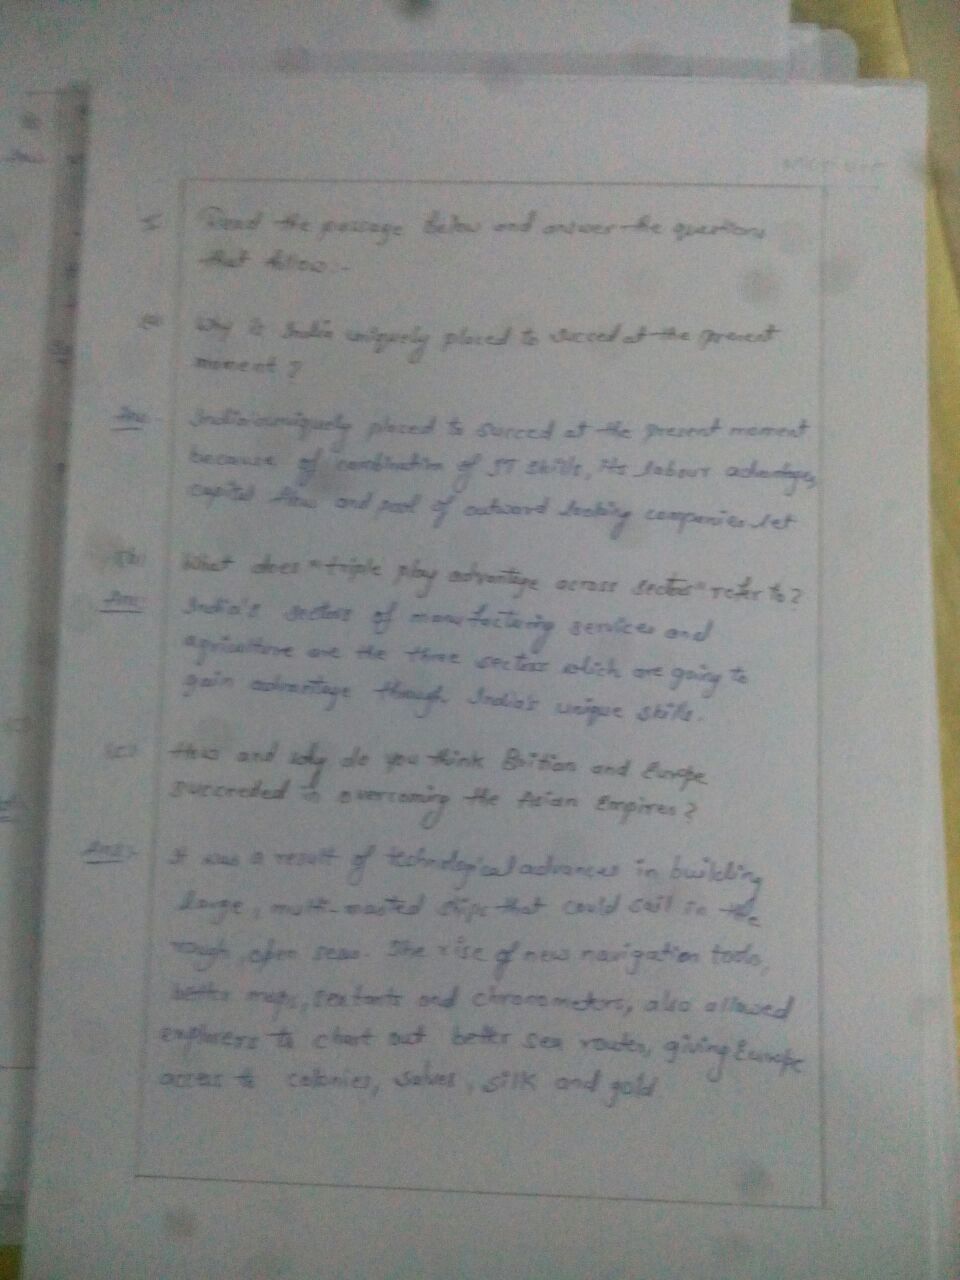 5. Read the passage below and answer the questions
that follow:-
(a) Why is India uniquely placed to succed at the present
moment ?
Ans India is uniquely placed to succed at the present moment
because of combination of IT skills, its labour advantages,
capital flow and pool of outward looking companies.
(b) What does "triple play advantage across sectors" refer to?
Ans India's sectors of manufacturing services and
agriculture are the three sectors which are going to
gain advantage through India's unique skills.
(c) How and why do you think Britian and Europe
succeeded in overcoming the Asian Empires?
Ans:- It was a result of technological advances in building
large, multi-masted ships that could sail in the
rough, open seas. The rise of new navigation tools,
better maps, sextants and chronometers, also allowed
explorers to chart out better sea routes, giving Europe
access to colonies, salves, silk and gold.